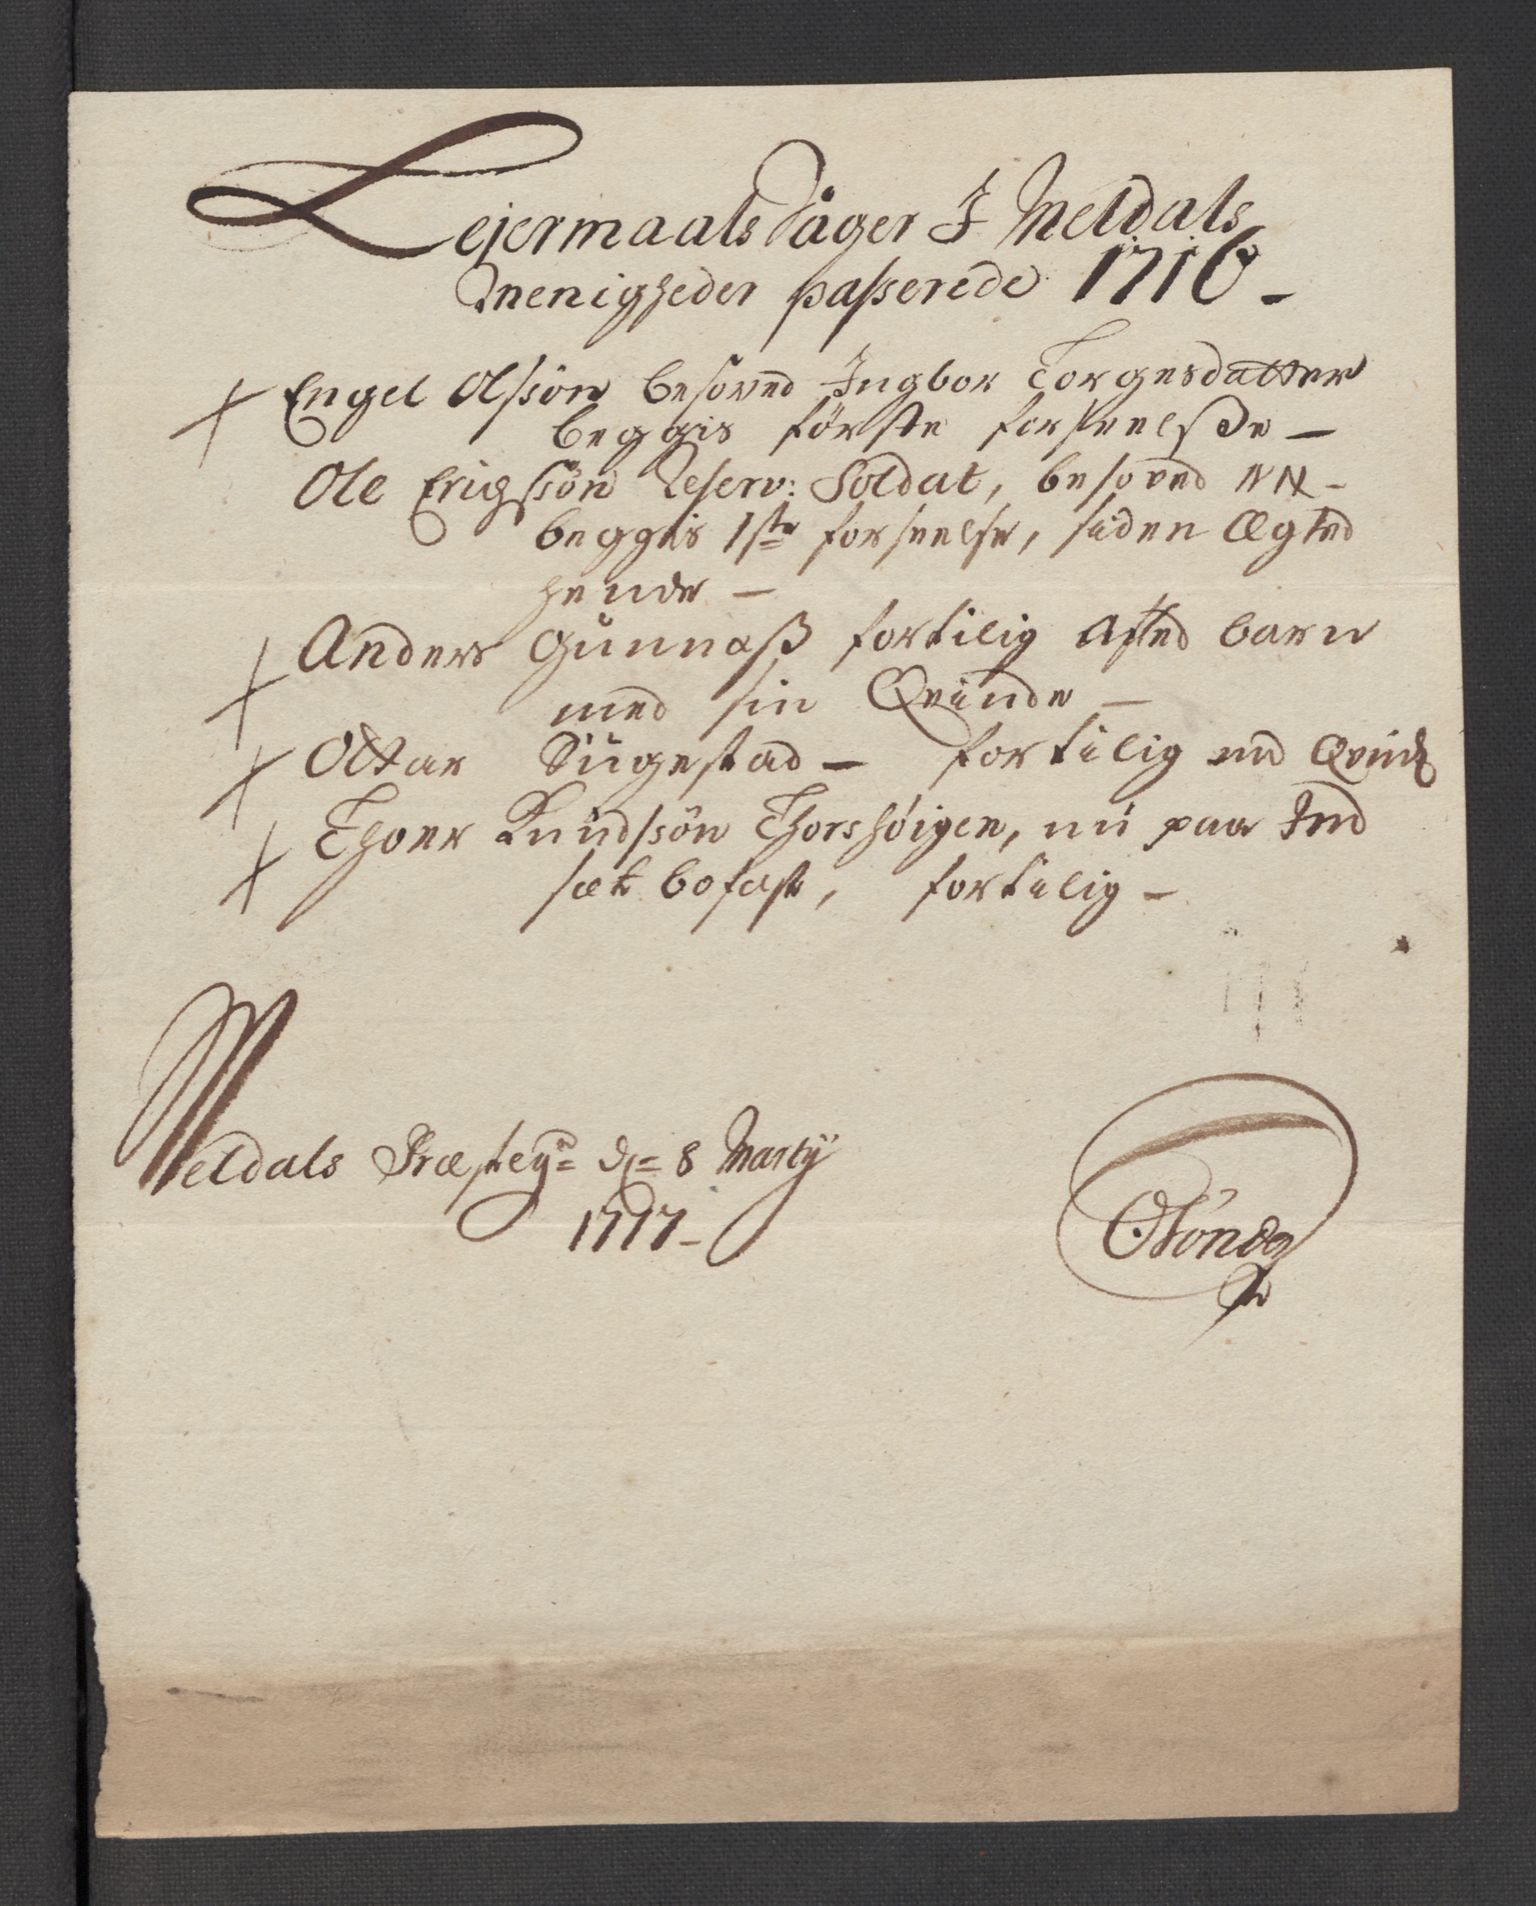 Lejermaals Sager I Meldals
Menigheder passerede 1716 -
Engel Olssön besoved Ingbor Torgesdatter
beggis förste forseelsse -
Ole Erichssön Reserv: Soldat, besoved NN -
beggis 1ste forseelse, siden Ægted
hende -
Anders Gunnaß fortilig afled barn
med sin Qvinde -
Ottar - fortilig med Qvind
Thoer Knudssön Thorshöigen, nu paa Ind
sæt bofast, fortilig -
Meldals Præstey: d: 8 Martij
1717 -